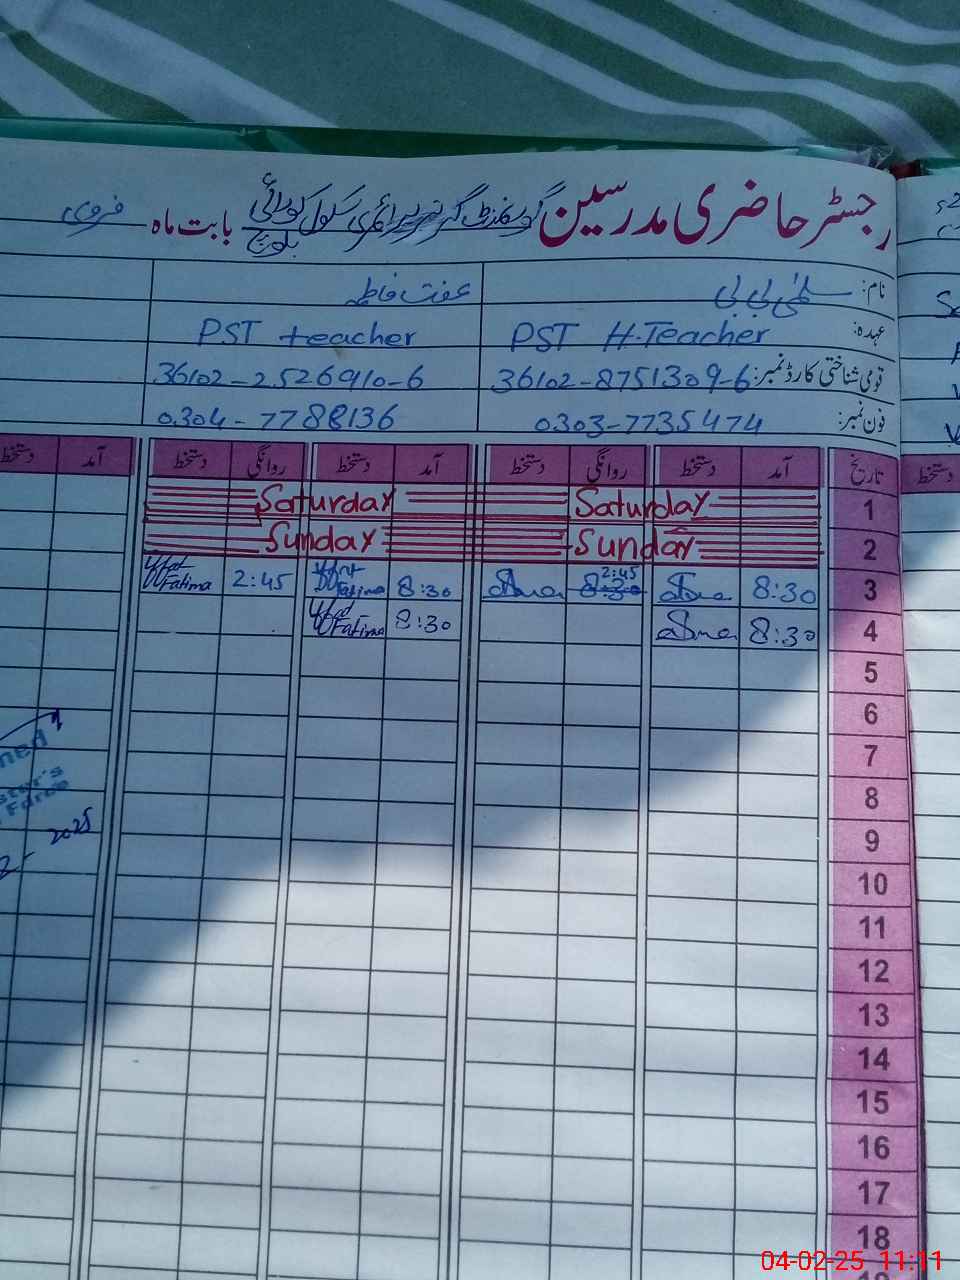 رجسٹر حاضری مدرسین گورنمنٹ گرلز پرائمری سکول کورائی بلوچ بابت ماہ فروری
نام: سلمیٰ بی بی عفت فاطمہ
عہدہ: PST H.Teacher PST teacher
قومی شناختی کارڈ نمبر: 36102-8751309-6 36102-2526910-6
فون نمبر: 0303-7735474 0304-7788136
تاریخ آمد دستخط روانگی دستخط آمد دستخط روانگی دستخط آمد دستخط
1 Saturday Saturday
2 Sunday Sunday
3 8:30 2:45 8:30 Iffat Fatima 2:45 Iffat Fatima
4 8:30 8:30 Iffat Fatima
5
6
7
8
9
10
11
12
13
14
15
16
17
18
دستخط
2025
04-02-25 11:11